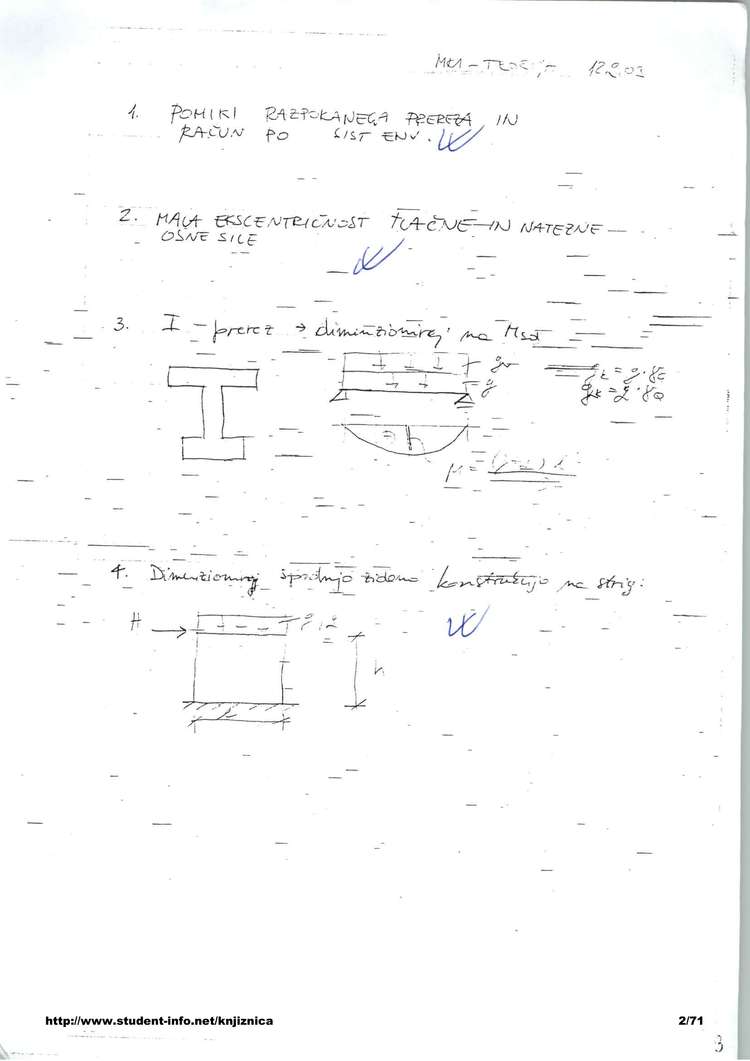 MK1 - TEORIJA 12.2.03
1. POMIKI RAZPOKANEGA PREREZA IN
RAČUN PO SIST ENV.
2. MALA EKSCENTRIČNOST TLAČNE IN NATEZNE
OSNE SILE
3. I - prerez → dimenzioniraj na Msd
g
4. Dimenzioniraj spodnjo zidano konstrukcijo na strig:
H
h
http://www.student-info.net/knjiznica 2/71
3